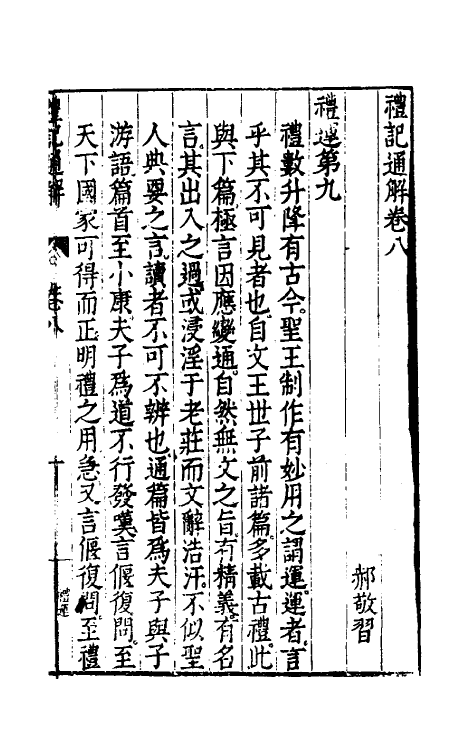 禮記通解卷八
郝敬習
禮運第九
禮數升降有古今聖王制作有妙用之謂運運者言
乎其不可見者也自文王世子前諸篇多載古禮此
與下篇極言因應變通自然無文之旨有精義有名
言其出入之過或浸淫于老莊而文辭浩汗不似聖
人典要之言讀者不可不辨也通篇皆為夫子與子
游語篇首至小康夫子為道不行發嘆言偃復問至
天下國家可得而正明禮之用急又言偃復問至禮
禮記通解
卷八
禮運